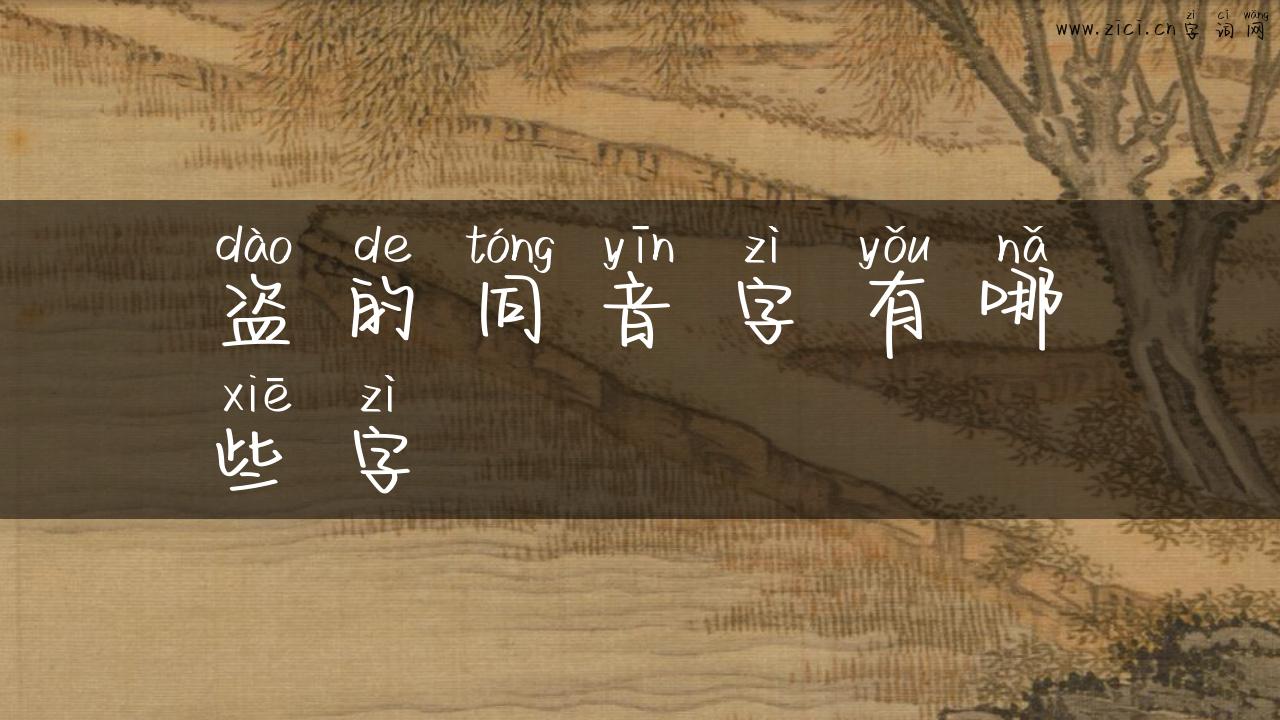 zì cí wǎng
www.zici.cn字词网
dào de tóng yīn zì yǒu nǎ
盗的同音字有哪
xiē zì
些字